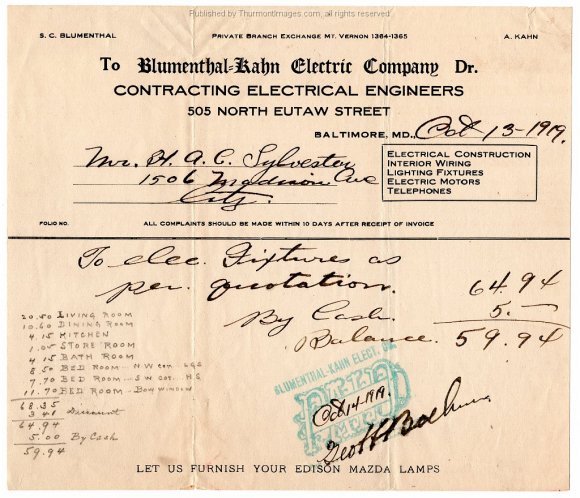 Published by ThurmontImages.com, all rights reserved
S. C. BLUMENTHAL PRIVATE BRANCH EXCHANGE MT. VERNON 1364-1365 A. KAHN
To Blumenthal-Kahn Electric Company Dr.
CONTRACTING ELECTRICAL ENGINEERS
505 NORTH EUTAW STREET
BALTIMORE, MD., Oct 13-1919.
Mr. H. A. C. Sylvester
1506 Madison Ave
City.
ELECTRICAL CONSTRUCTION
INTERIOR WIRING
LIGHTING FIXTURES
ELECTRIC MOTORS
TELEPHONES
FOLIO NO. ALL COMPLAINTS SHOULD BE MADE WITHIN 10 DAYS AFTER RECEIPT OF INVOICE
To elec. Fixtures as
per. quotation. 64.94
By Cash 5.—
Balance. 59.94
20.50 LIVING ROOM
10.60 DINING ROOM
4.15 KITCHEN
1.05 STORE ROOM
4.15 BATH ROOM
8.50 BED ROOM -- NW COR. - LGS
7.70 BED ROOM -- SW COT. - H.S
11.70 BED ROOM - BOW WINDOW
68.35
3.41 Discount
64.94
5.00 By Cash
59.94
BLUMENTHAL-KAHN ELECT. CO.
PAID
Oct 14-1919.
Geo H
LET US FURNISH YOUR EDISON MAZDA LAMPS